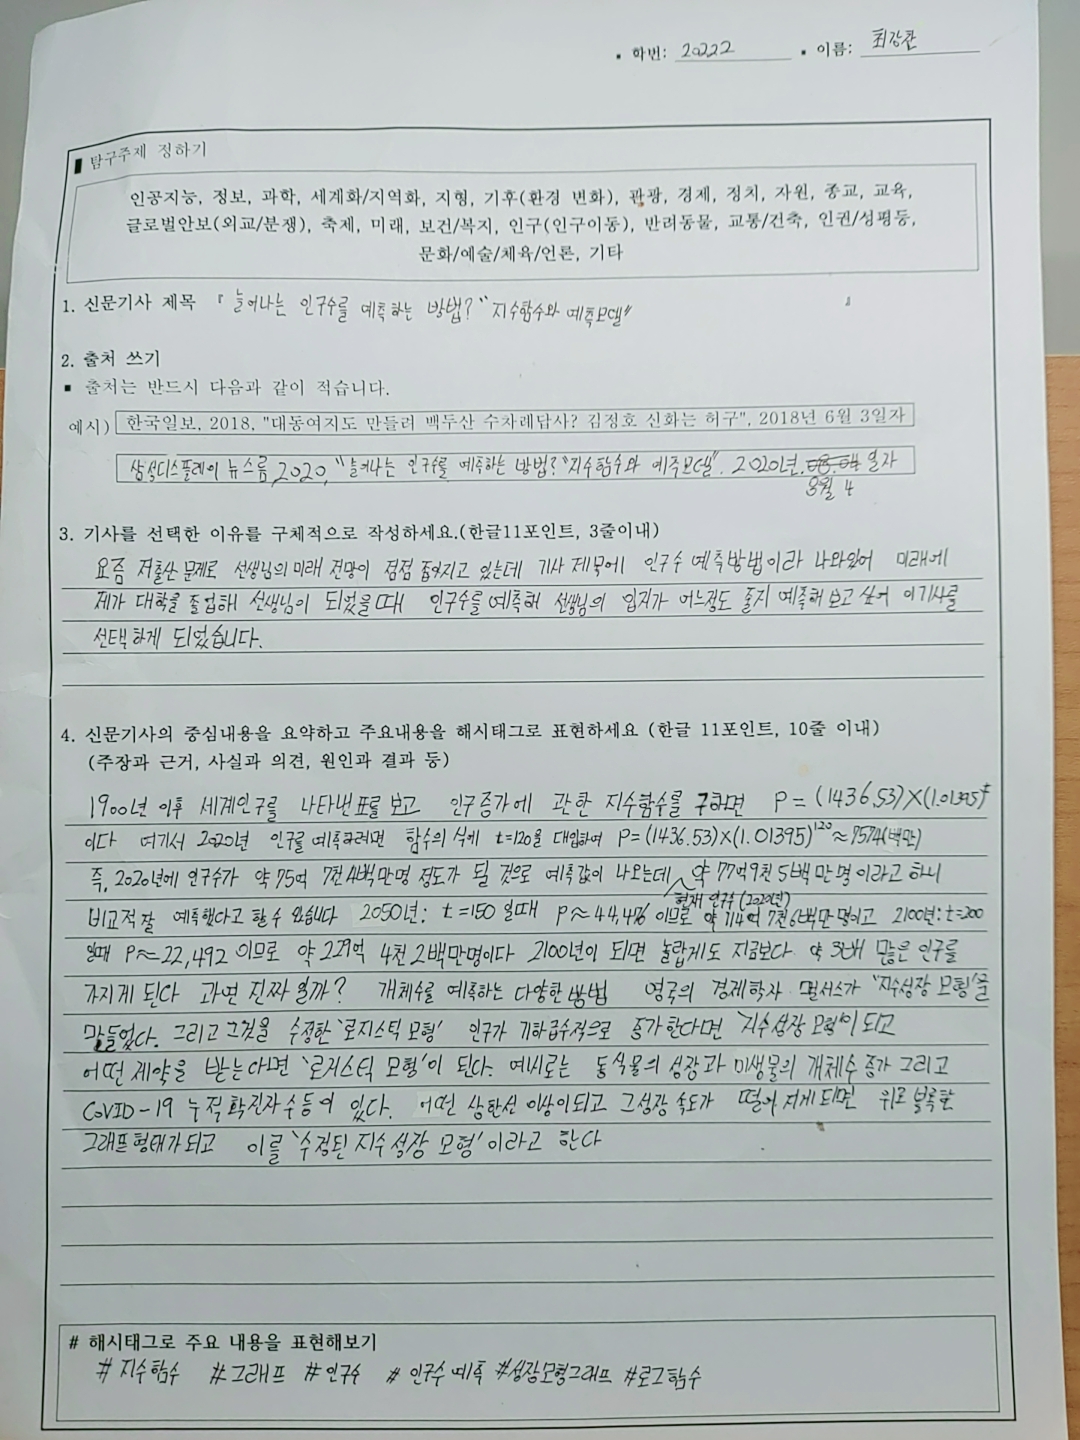 ▪ 학번: 20222 ▪ 이름: 최강찬
▮ 탐구주제 정하기
인공지능, 정보, 과학, 세계화/지역화, 지형, 기후(환경 변화), 관광, 경제, 정치, 자원, 종교, 교육,
글로벌안보(외교/분쟁), 축제, 미래, 보건/복지, 인구(인구이동), 반려동물, 교통/건축, 인권/성평등,
문화/예술/체육/언론, 기타
1. 신문기사 제목 『 늘어나는 인구수를 예측하는 방법? "지수함수와 예측모델" 』
2. 출처 쓰기
▪ 출처는 반드시 다음과 같이 적습니다.
예시) 한국일보, 2018, "대동여지도 만들려 백두산 수차례답사? 김정호 신화는 허구", 2018년 6월 3일자
삼성디스플레이 뉴스룸, 2020, "늘어나는 인구수를 예측하는 방법? "지수함수와 예측모델". 2020년. 08. 04 일자
8월 4
3. 기사를 선택한 이유를 구체적으로 작성하세요.(한글11포인트, 3줄이내)
요즘 저출산 문제로 선생님의 미래 전망이 점점 좁아지고 있는데 기사 제목에 인구수 예측방법이라 나와있어 미래에
제가 대학을 졸업해 선생님이 되었을때 인구수를 예측해 선생님의 입지가 어느정도 줄지 예측해 보고 싶어 이 기사를
선택하게 되었습니다.
4. 신문기사의 중심내용을 요약하고 주요내용을 해시태그로 표현하세요 (한글 11포인트, 10줄 이내)
(주장과 근거, 사실과 의견, 원인과 결과 등)
1900년 이후 세계인구를 나타낸표를 보고 인구증가에 관한 지수함수를 구하면 P = (1436.53)×(1.01395)ᵗ
이다 여기서 2020년 인구를 예측하려면 함수의 식에 t=120을 대입하여 P=(1436.53)×(1.01395)¹²⁰≈7574(백만)
즉, 2020년에 인구수가 약 75억 7천 4백만명 정도가 될 것으로 예측값이 나오는데 약 77억9천 5백만명이라고 하니
현재 인구수(2020년)
비교적 잘 예측했다고 할 수 있습니다 2050년: t=150 일때 P≈44,476 이므로 약 114억 7천 6백만명이고 2100년: t=200
일때 P≈22,492 이므로 약 229억 4천 2백만명이다 2100년이 되면 놀랍게도 지금보다 약 3배 많은 인구를
가지게 된다 과연 진짜 일까? 개체수를 예측하는 다양한 방법 영국의 경제학자 멜서스가 '지수성장 모형'을
만들었다. 그리고 그것을 수정한 '로지스틱 모형' 인구가 기하급수적으로 증가한다면 '지수성장 모형'이 되고
어떤 제약을 받는다면 '로거스틱 모형'이 된다. 예시로는 동식물의 성장과 미생물의 개체수 증가 그리고
COVID-19 누적 확진자수 등이 있다. 어떤 상한선 이상이되고 그성장 속도가 떨어 지게 되면 위로 볼록한
그래프 형태가 되고 이를 '수정된 지수 성장 모형'이라고 한다
# 해시태그로 주요 내용을 표현해보기
# 지수함수 #그래프 #인구수 # 인구수 예측 #성장모형그래프 #로그함수